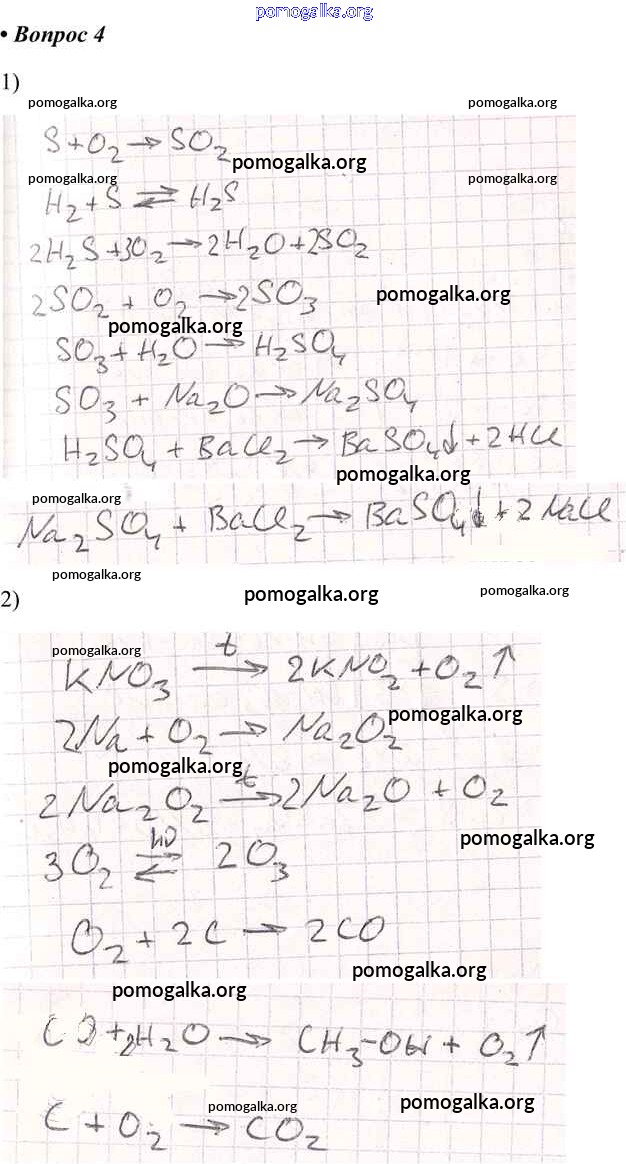 pomogalka.org
• Вопрос 4
1)
pomogalka.org pomogalka.org
S + O₂ → SO₂
pomogalka.org
pomogalka.org pomogalka.org
H₂ + S ⇄ H₂S
2H₂S + 3O₂ → 2H₂O + 2SO₂
2SO₂ + O₂ → 2SO₃
pomogalka.org
pomogalka.org
SO₃ + H₂O → H₂SO₄
SO₃ + Na₂O → Na₂SO₄
H₂SO₄ + BaCl₂ → BaSO₄↓ + 2HCl
pomogalka.org
pomogalka.org
Na₂SO₄ + BaCl₂ → BaSO₄↓ + 2NaCl
pomogalka.org pomogalka.org pomogalka.org
2)
pomogalka.org
KNO₃ t→ 2KNO₂ + O₂↑
pomogalka.org
2Na + O₂ → Na₂O₂
pomogalka.org
2Na₂O₂ t→ 2Na₂O + O₂
pomogalka.org
3O₂ hυ⇄ 2O₃
O₂ + 2C → 2CO
pomogalka.org
pomogalka.org
CO + 2H₂O → CH₃-OH + O₂↑
pomogalka.org pomogalka.org
C + O₂ → CO₂